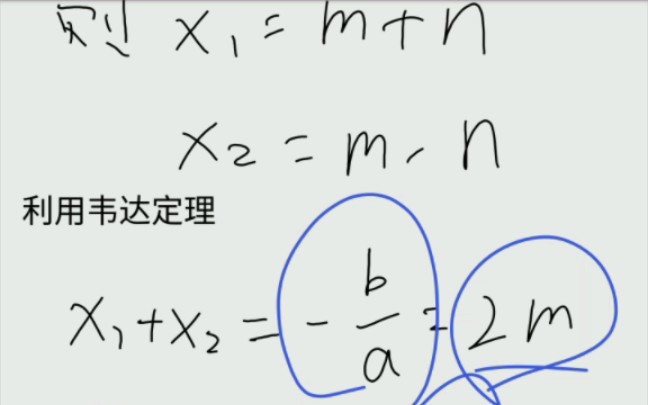 则 x₁ = m + n
x₂ = m - n
利用韦达定理
x₁ + x₂ = - b/a = 2m